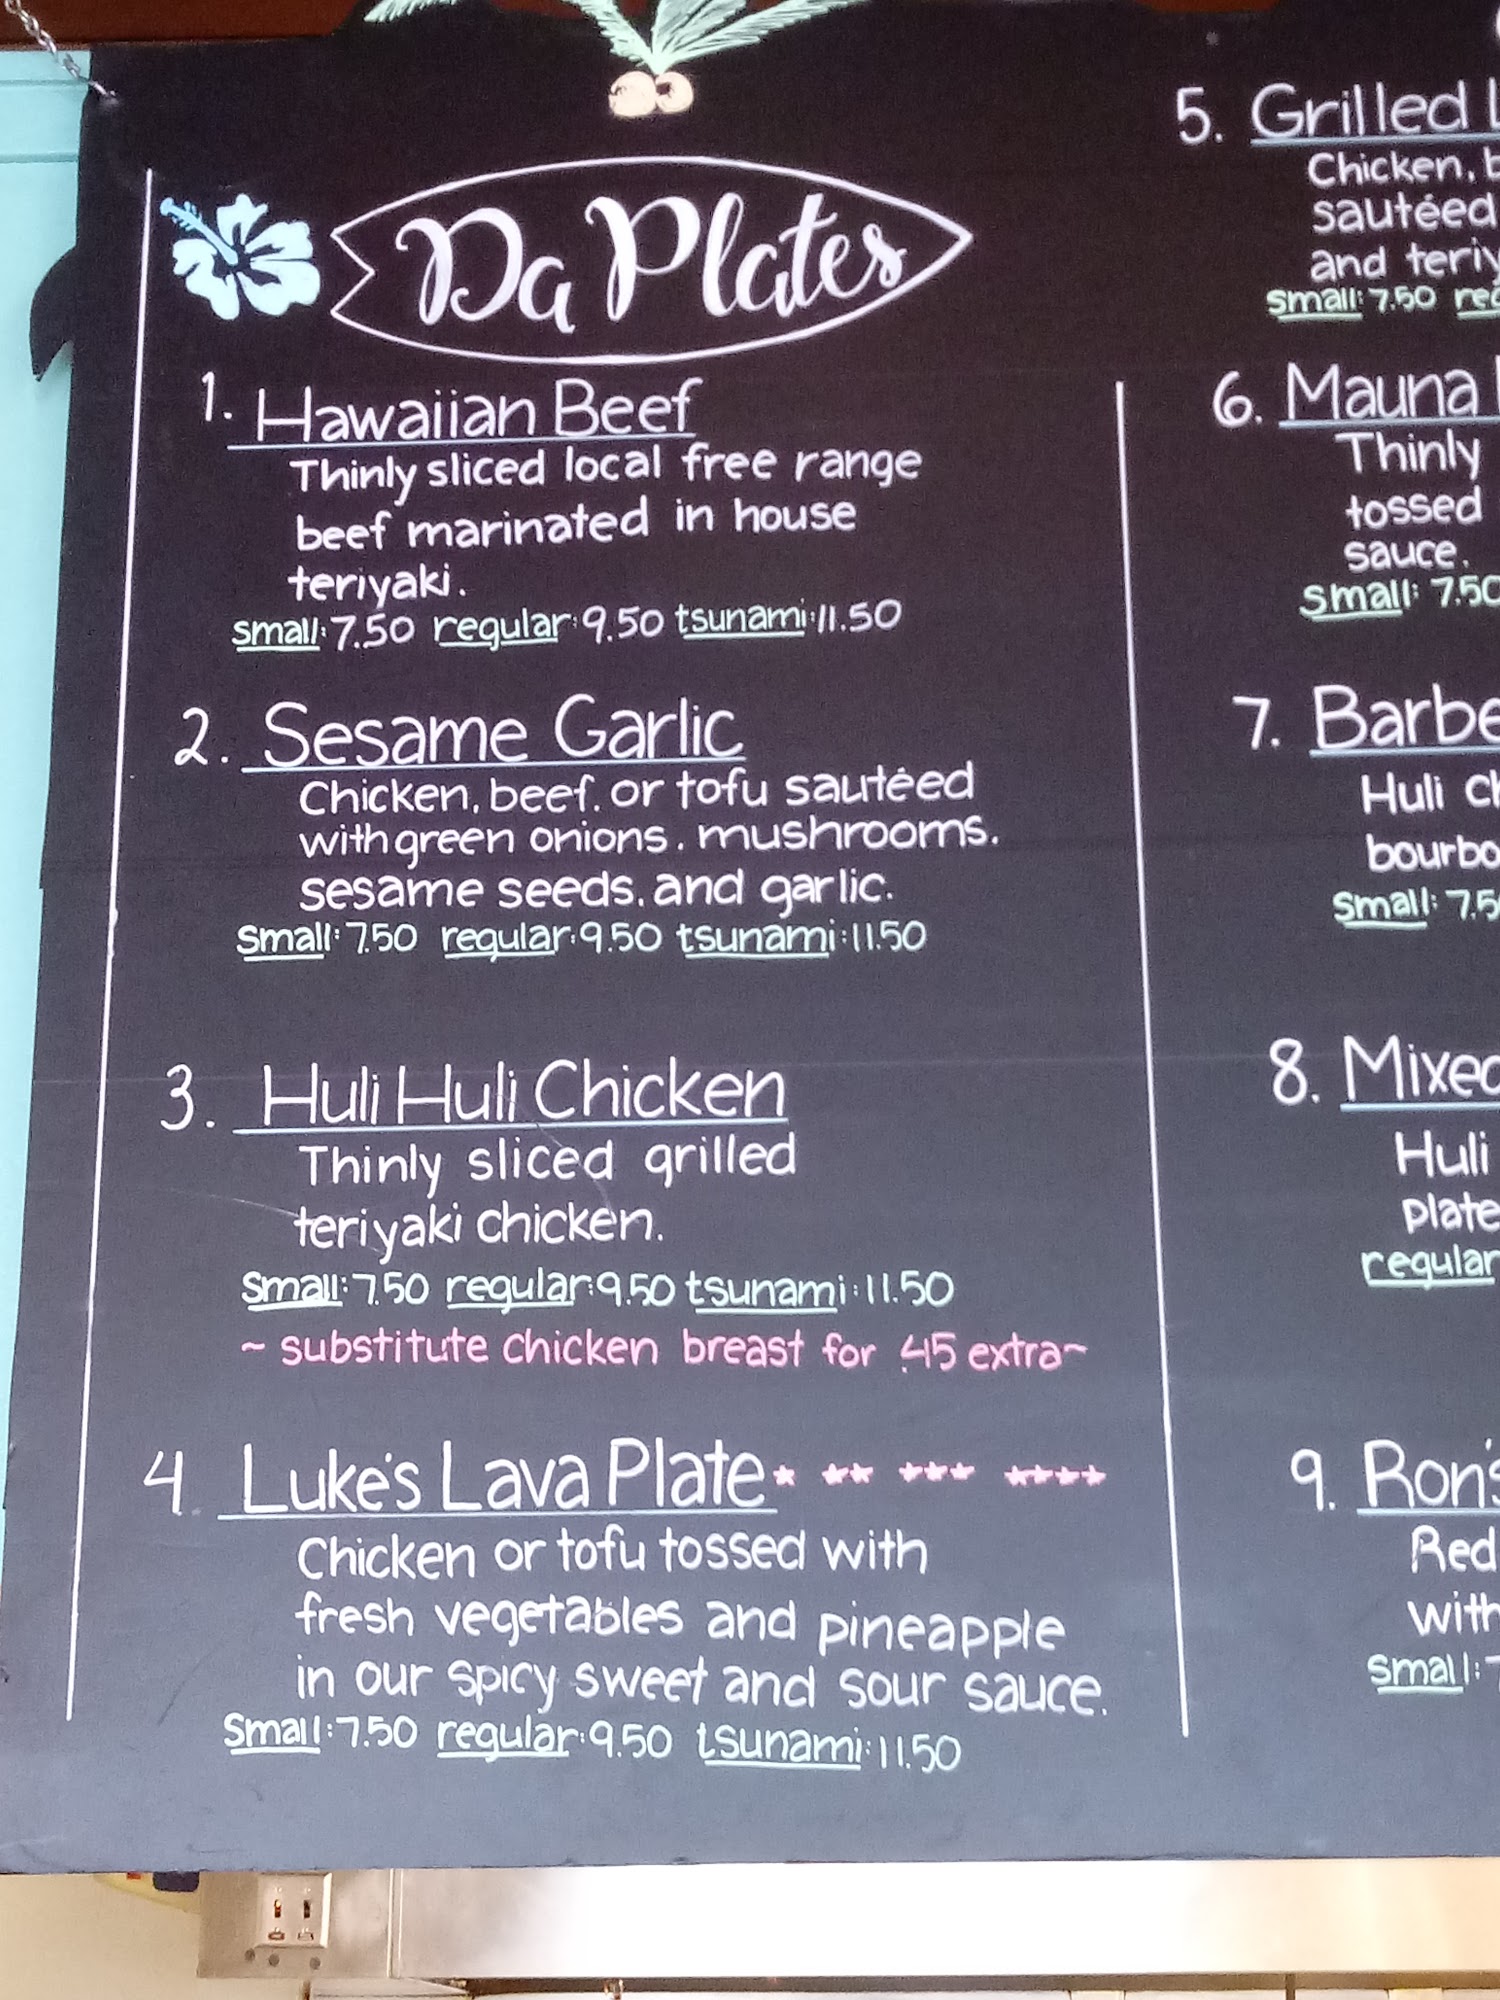 Da Plates
1. Hawaiian Beef
Thinly sliced local free range
beef marinated in house
teriyaki.
small: 7.50 regular: 9.50 tsunami: 11.50
2. Sesame Garlic
Chicken, beef, or tofu sautéed
with green onions, mushrooms,
sesame seeds, and garlic.
Small: 7.50 regular: 9.50 tsunami: 11.50
3. Huli Huli Chicken
Thinly sliced grilled
teriyaki chicken.
Small: 7.50 regular: 9.50 tsunami: 11.50
~ substitute chicken breast for .45 extra ~
4. Luke's Lava Plate * ** *** ****
Chicken or tofu tossed with
fresh vegetables and pineapple
in our spicy sweet and sour sauce.
Small: 7.50 regular: 9.50 tsunami: 11.50
5. Grilled
Chicken,
sautéed
and
small: 7.50
6. Mauna
Thinly
tossed
sauce.
Small: 7.50
7.
Huli
Small:
8.
Huli
plate
regular
9.
Red
with
Small: